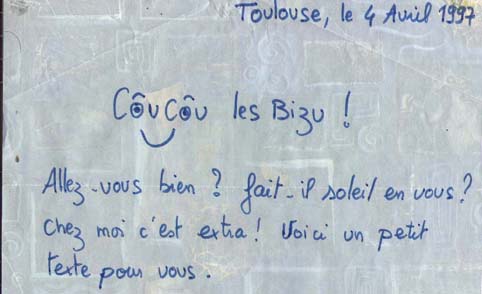 Toulouse, le 4 Avril 1997
Côucôu les Bizu !
Allez-vous bien ? fait-il soleil en vous ?
Chez moi c'est extra ! Voici un petit
texte pour vous.